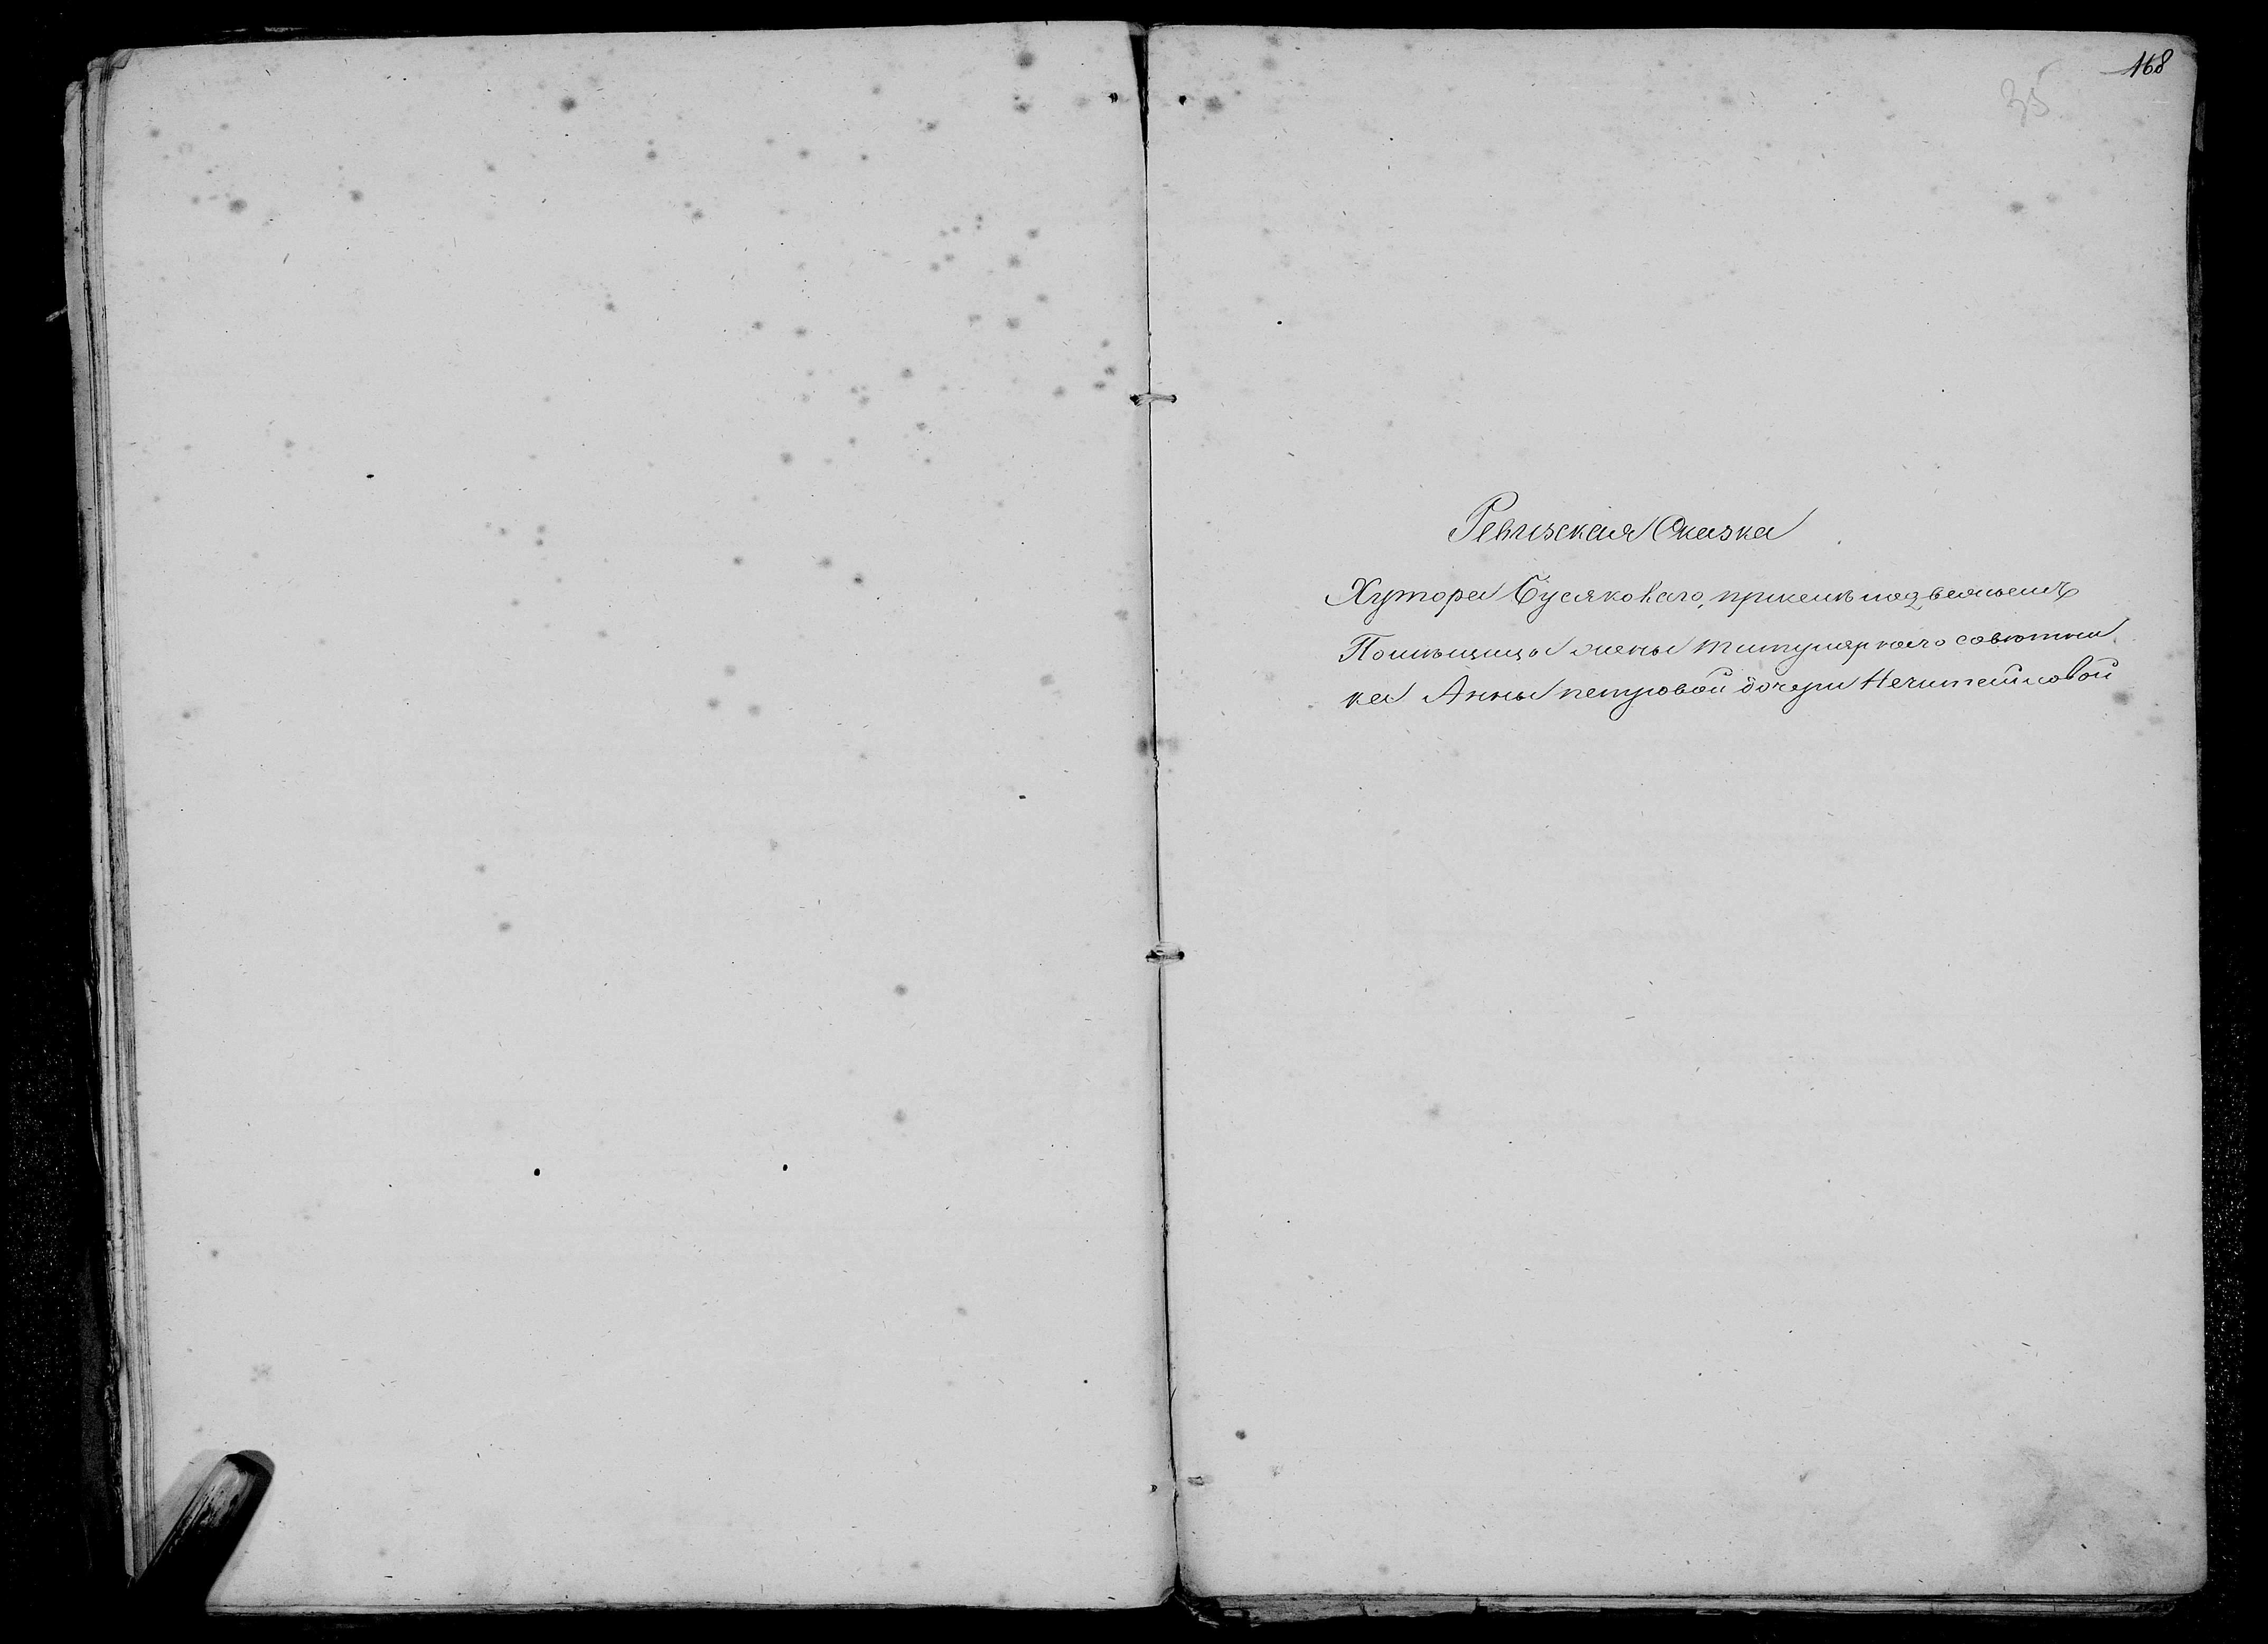 168
35
Ревизская Сказка
Хутора Бусяковаго,
Помѣщицы жены титулярнаго совѣтни
ка Анны петровой дочери Нечитайловой